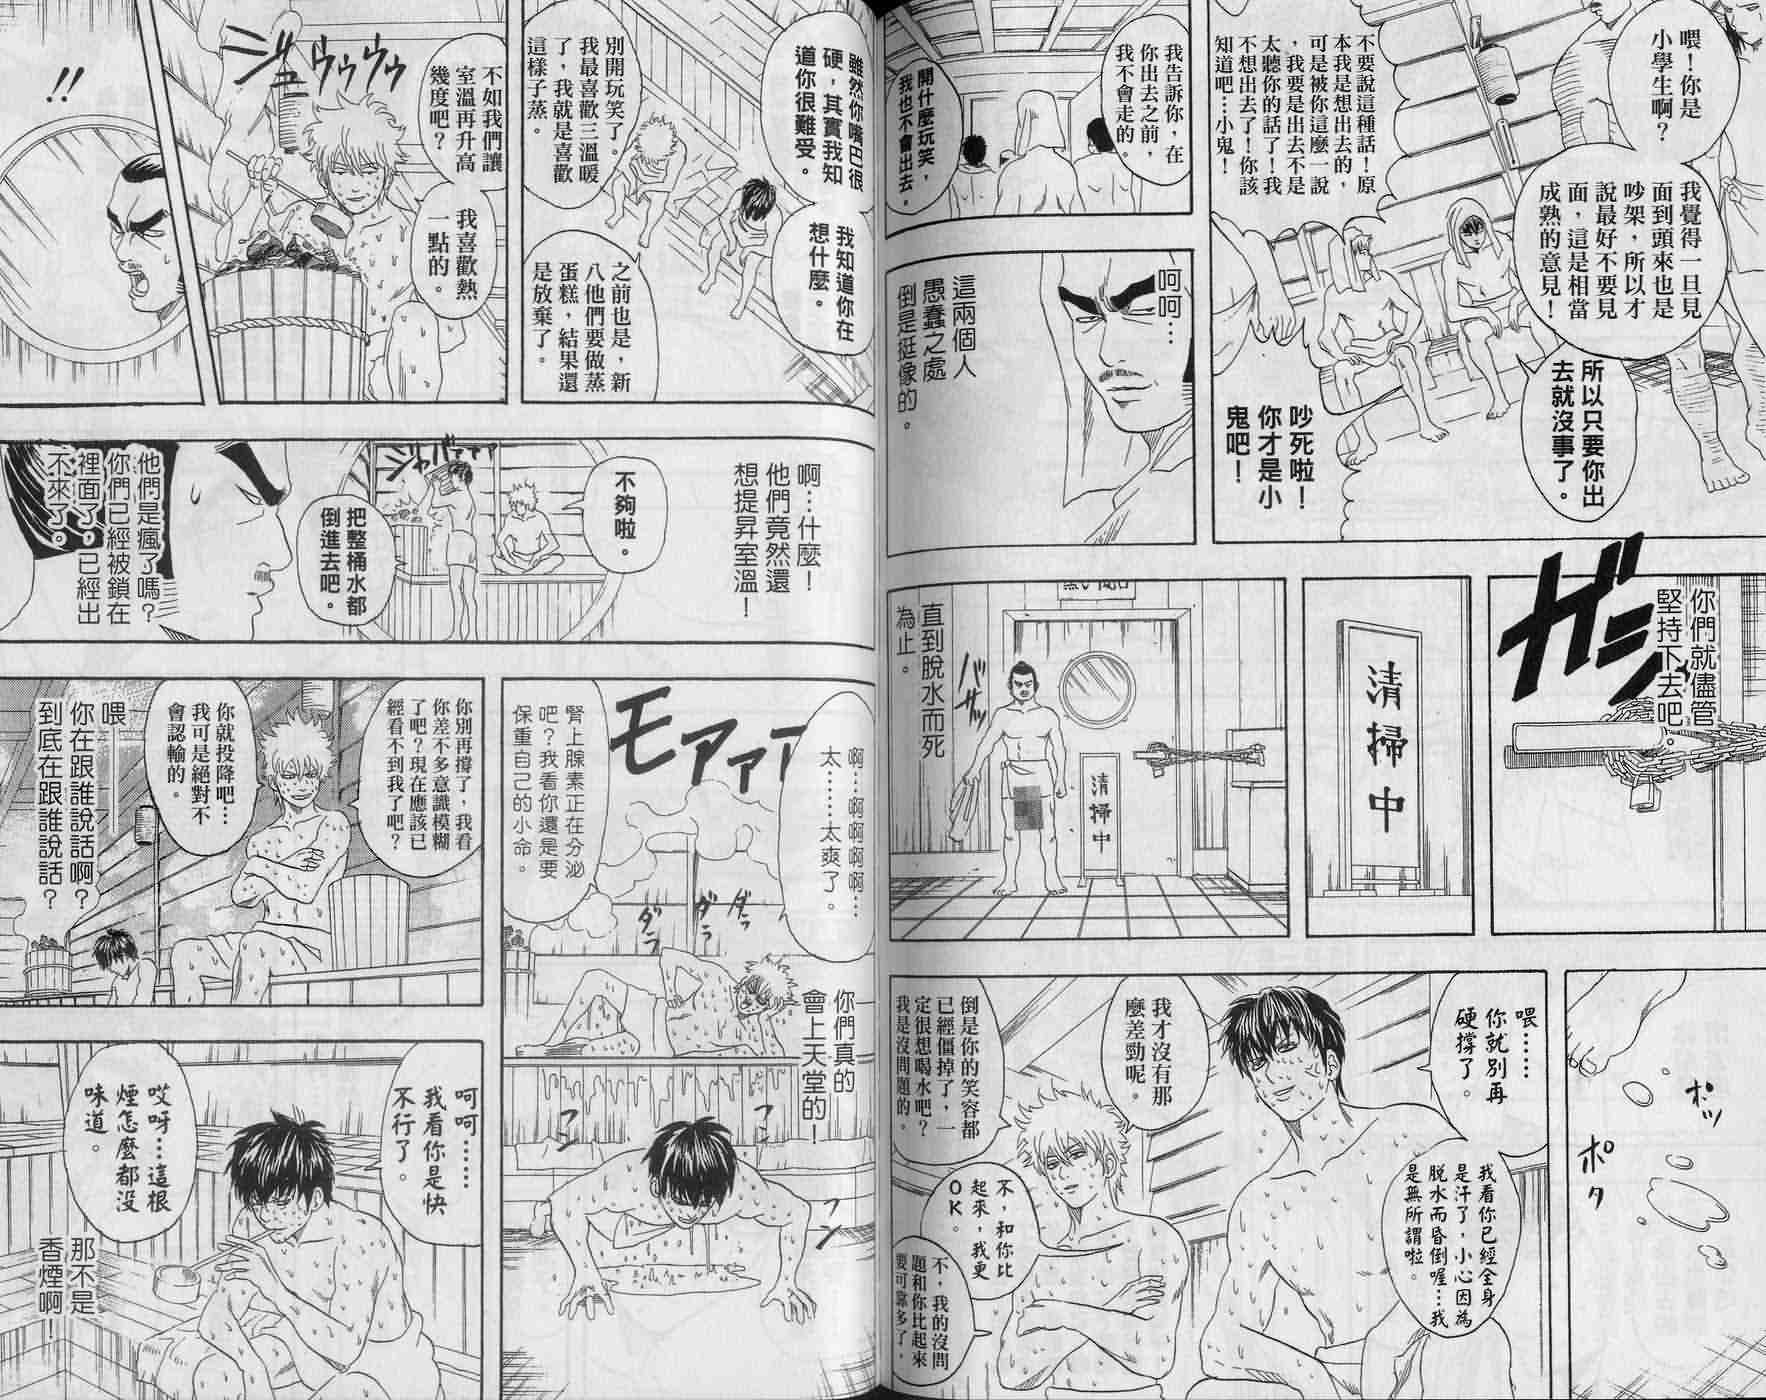 喂！你是
小學生啊？
我覺得一旦見
面到頭來也是
吵架，所以才
說最好不要見
面，這是相當
成熟的意見！
所以只要你出
去就沒事了。
不要說這種話！原
本我是想出去的，
可是被你這麼一說
，我要是出去不是
太聽你的話了！我
不想出去了！你該
知道吧…小鬼！
吵死啦！
你才是小
鬼吧！
我告訴你，在
你出去之前，
我不會走的。
開什麼玩笑，
我也不會出去。
呵呵…
這兩個人
愚蠢之處
倒是挺像的。
你們就儘管
堅持下去吧。
ガシ
清掃中
直到脫水而死
為止。
バサッ
清掃中
ポッ
ポタ
喂……
你就別再
硬撐了。
我看你已經全身
是汗了，小心因為
脫水而昏倒喔…我
是無所謂啦。
我才沒有那
麼差勁呢。
倒是你的笑容都
已經僵掉了，一
定很想喝水吧？
我是沒問題的。
不，和你比
起來，我更
OK。
不，我的沒問
題和你比起來
要可靠多了，
雖然你嘴巴很
硬，其實我知
道你很難受。
我知道你在
想什麼。
別開玩笑了。
我最喜歡三溫暖
了，我就是喜歡
這樣子蒸。
之前也是，新
八他們要做蒸
蛋糕，結果還
是放棄了。
不如我們讓
室溫再升高
幾度吧？
我喜歡熱
一點的。
ジュゥゥゥ
!!
啊…什麼！
他們竟然還
想提昇室溫！
不夠啦。
把整桶水都
倒進去吧。
他們是瘋了嗎？
你們已經被鎖在
裡面了，已經出
不來了。
モアァァァ
啊…啊啊啊啊…
太……太爽了。
腎上腺素正在分泌
吧？我看你還是要
保重自己的小命。
ダラ
ダラ
ダラ
你們真的
會上天堂的！
フン
フン
你別再撐了，我看
你差不多意識模糊
了吧？現在應該已
經看不到我了吧？
你就投降吧…
我可是絕對不
會認輸的。
喂
你在跟誰說話啊？
到底在跟誰說話？
呵呵……
我看你是快
不行了。
哎呀…這根
煙怎麼都沒
味道。
那不是
香煙啊！